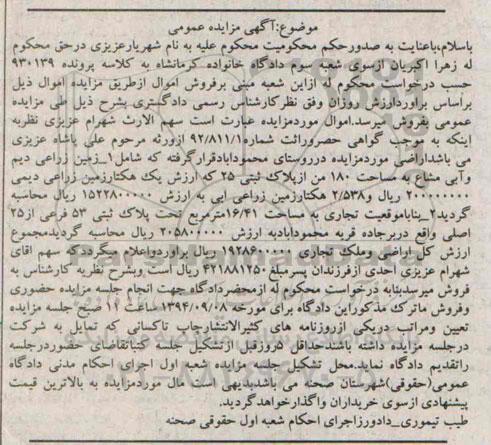 موضوع:آگهی مزایده عمومی
باسلام،باعنایت به صدورحکم محکومیت محکوم علیه به نام شهریارعزیزی درحق محکوم
له زهرا اکبریان ازسوی شعبه سوم دادگاه خانواده کرمانشاه به کلاسه پرونده ۹۳۰۱۳۹
حسب درخواست محکوم له ازاین شعبه مبنی برفروش اموال ازطریق مزایده اموال ذیل
براساس برآوردارزش روزان وفق نظرکارشناس رسمی دادگستری بشرح ذیل طی مزایده
عمومی بفروش میرسد.اموال موردمزایده عبارت است سهم الارث شهرام عزیزی نظربه
اینکه به موجب گواهی حصروراثت شماره۹۲/۸۱۱/۱ ازورثه مرحوم علی پاشاه عزیزی
می باشداراضی موردمزایده درروستای محمودابادقرارگرفته که شامل۱_زمین زراعی دیم
وآبی مشاع به مساحت ۱۸۰ من ازپلاک ثبتی ۲۵ که ارزش یک هکتارزمین زراعی دیمی
۲۰۰۰۰۰۰۰۰ ریال و۲/۵۳۸ هکتارزمین زراعی ابی به ارزش ۱۵۲۲۸۰۰۰۰۰ ریال محاسبه
گردید۲_بنایاموقعیت تجاری به مساحت ۱۶/۴۱مترمربع تحت پلاک ثبتی ۵۳ فرعی از۲۵
اصلی واقع دربرجاده قریه محمودآبادبه ارزش ۲۰۵۸۰۰۰۰۰ ریال محاسبه گردیدمجموع
ارزش کل اراضی وملک تجاری ۱۹۲۸۶۰۰۰۰۰ ریال برآورداعلام میگرددکه سهم اقای
شهرام عزیزی احدی ازفرزندان پسرمبلغ۴۲۱۸۸۱۲۵۰ ریال است.وبشرح نظریه کارشناس به
فروش میرسدبنابه درخواست محکوم له ازمحضردادگاه جهت انجام جلسه مزایده حضوری
وفروش ماترک مذکوراین دادگاه برای مورخه ۱۳۹۴/۰۹/۰۸ساعت ۱۱ صبح جلسه مزایده
تعیین ومراتب دریکی ازروزنامه های کثیرالانتشارچاپ تاکسانی که تمایل به شرکت
درجلسه مزایده داشته باشندحداقل ۵روزقبل ازتشکیل جلسه کتباتقاضای حضوردرجلسه
راتقدیم دادگاه نماید.محل تشکیل جلسه مزایده شعبه اول اجرای احکام مدنی دادگاه
عمومی(حقوقی)شهرستان صحنه می باشدبدیهی است مال موردمزایده به بالاترین قیمت
پیشنهادی ازسوی خریداران واگذارخواهدگردید.
طیب تیموری_دادورزاجرای احکام شعبه اول حقوقی صحنه